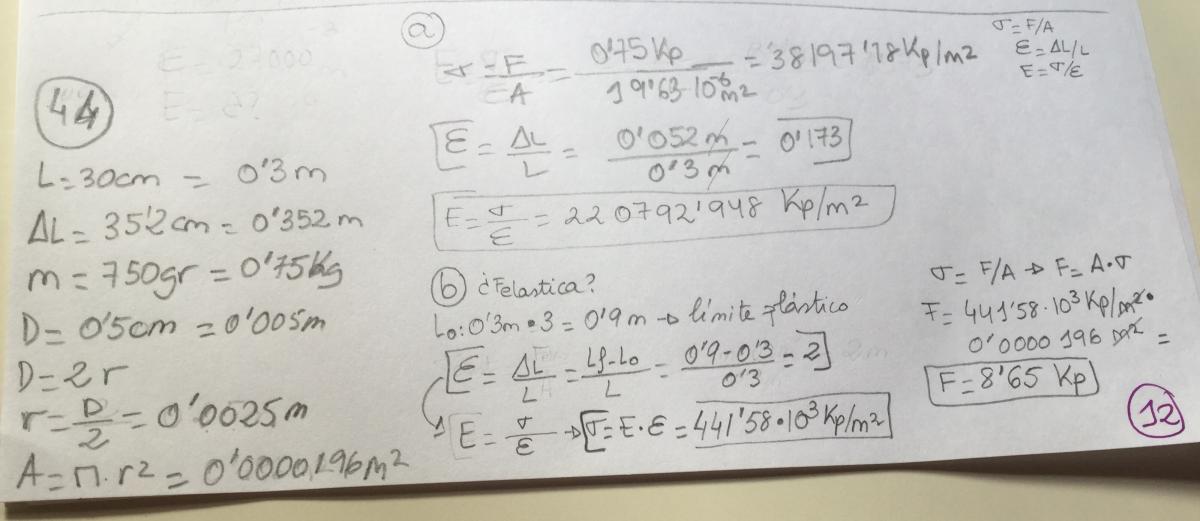 44
L = 30cm = 0'3m
ΔL = 35'2cm = 0'352m
m = 750gr = 0'75Kg
D = 0'5cm = 0'005m
D = 2r
r = D/2 = 0'0025m
A = π·r² = 0'0000196m²
a
σ = F/A = 0'75Kp / 19'63·10⁻⁶m² = 38197'18Kp/m²
ε = ΔL/L = 0'052m / 0'3m = 0'173
E = σ/ε = 220792'948 Kp/m²
σ = F/A
ε = ΔL/L
E = σ/ε
b ¿Felastica?
Lo: 0'3m·3 = 0'9m → límite plástico
ε = ΔL/L = Lf-Lo/L = 0'9-0'3/0'3 = 2
E = σ/ε → σ = E·ε = 441'58·10³Kp/m²
σ = F/A → F = A·σ
F = 441'58·10³Kp/m²·
0'0000196m² =
F = 8'65 Kp
12